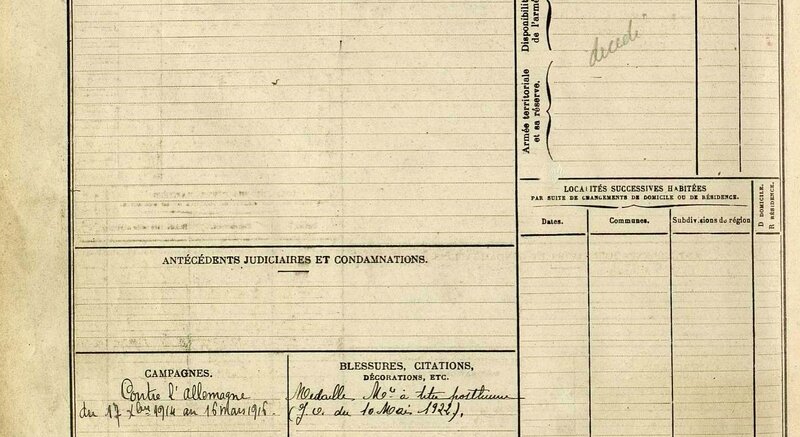 Disponibilité
de l'armée
décédé
Armée territoriale
et sa réserve.
LOCALITÉS SUCCESSIVES HABITÉES
PAR SUITE DE CHANGEMENTS DE DOMICILE OU DE RÉSIDENCE.
Dates.
Communes.
Subdivisions de région
D DOMICILE.
R RÉSIDENCE.
ANTÉCÉDENTS JUDICIAIRES ET CONDAMNATIONS.
CAMPAGNES.
Contre l'allemagne
du 17 Xbre 1914 au 16 mars 1916.
BLESSURES, CITATIONS,
DÉCORATIONS, ETC.
Médaille Mre à titre posthume
(J.O. du 10 Mai 1922).